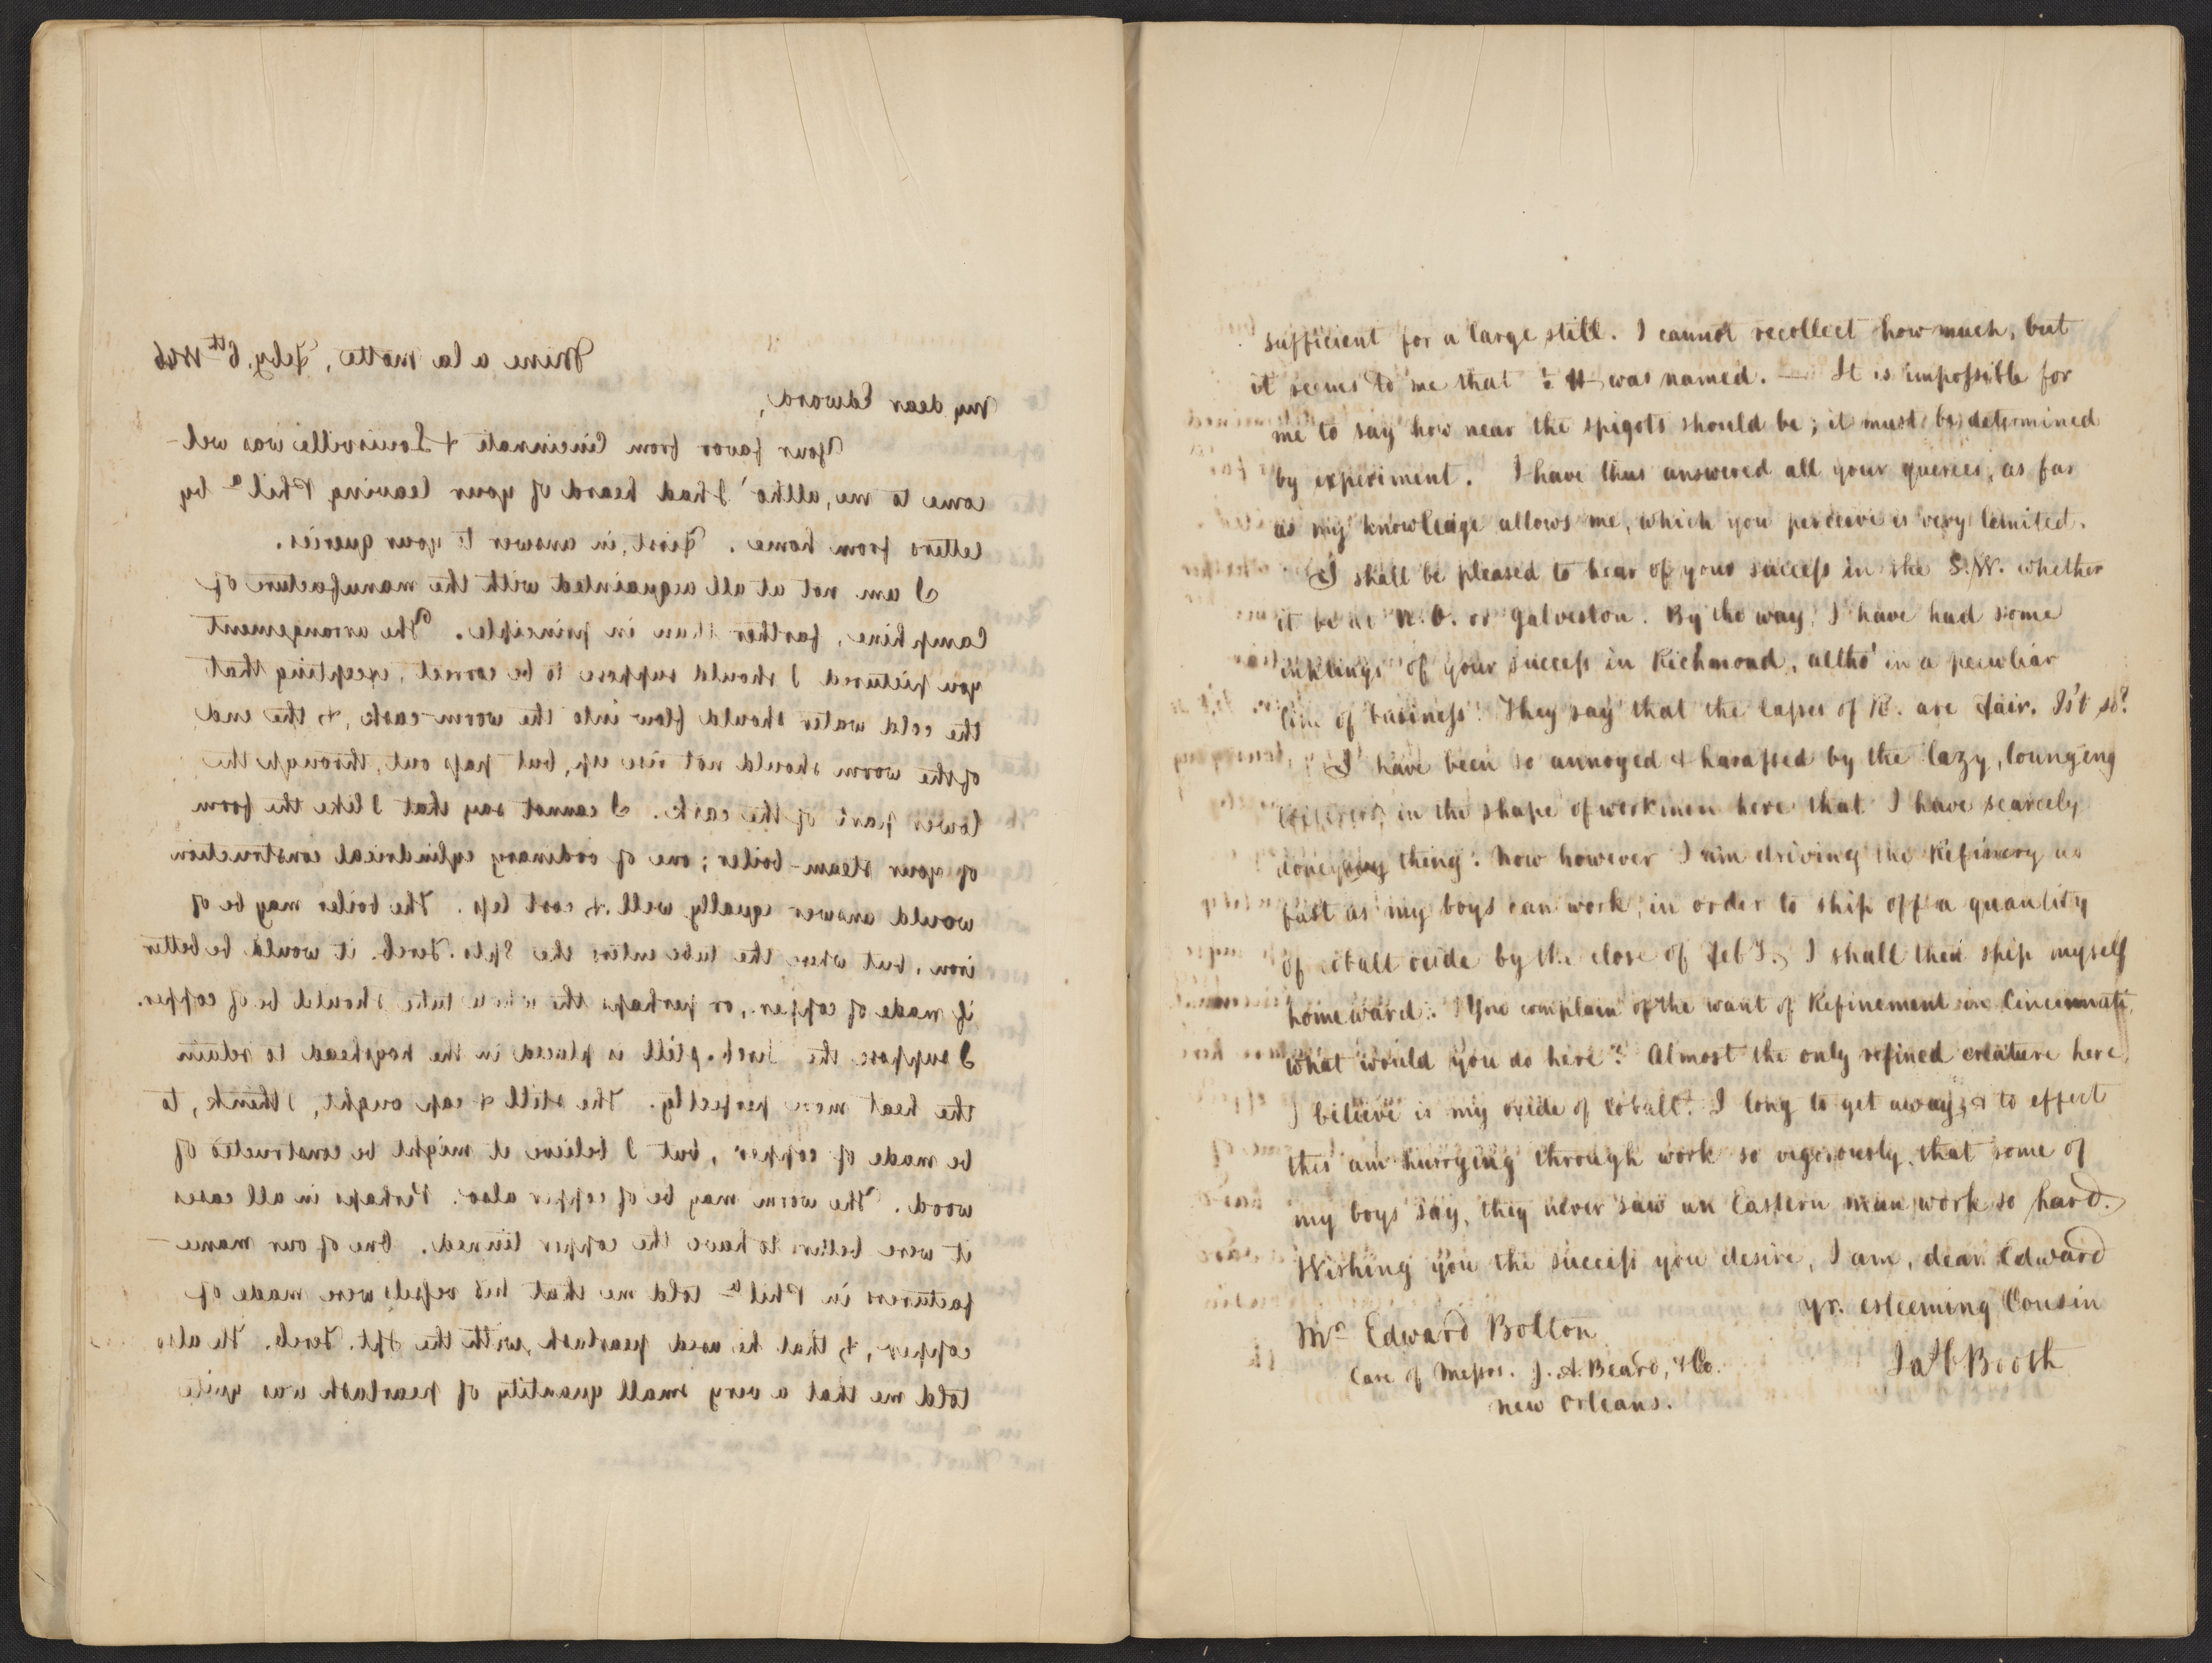 Mine a la Motte, Feby. 6th 1846
My dear Edward,
Your favor from Cincinnati & Louisville was wel-
come to me, altho' I had heard of your leaving Phila by
letters from home. First, in answer to your queries.
I am not at all acquainted with the manufacture of
Camphine, farther than in principle. The arrangement
you pictured I should suppose to be correct, excepting that
the cold water should flow into the worm-cask, & the end
of the worm should not rise up, but pass out, through the
lower part of the cask. I cannot say that I like the form
of your steam-boiler; one of ordinary cylindrical construction
would answer equally well & cost less. The boiler may be of
iron, but where the tube enters the Spts. Tereb. it would be better
if made of copper, or perhaps the whole tube should be of copper.
I suppose the Tereb. still is placed in the hogshead to retain
the heat more perfectly. The still & cap ought, I think, to
be made of copper, but I believe it might be constructed of
wood. The worm may be of copper also. Perhaps in all cases
it were better to have the copper tinned. One of our manu-
facturers in Phila told me that his vessels were made of
copper, & that he used pearlash, with the Spt. Tereb. He also
told me that a very small quantity of pearlash was quite
sufficient for a large still. I cannot recollect how much, but
it seems to me that was named. — It is impossible for
me to say how near the spigots should be; it must be determined
by experiment. I have thus answered all your queries, as far
as my knowledge allows me, which you perceive is very limited.
I shall be pleased to hear of your success in the S.W. whether
it be at N.O. or Galveston. By the way, I have had some
inklings of your success in Richmond, altho' in a peculiar
line of business. They say that the lasses of R. are fair. Is't so?
I have been so annoyed & harassed by the lazy, lounging
in the shape of workmen here that I have scarcely
done any thing. Now however I am driving the Refinery as
fast as my boys can work, in order to ship off a quantity
of cobalt oxide by the close of Feby. I shall then ship myself
homeward. You complain of the want of Refinement in Cincinnati,
what would you do here? Almost the only refined creature here
I believe is my oxide of cobalt. I long to get away, & to effect
this am hurrying through work so vigorously, that some of
my boys say, they never saw an Eastern man work so hard.
Wishing you the success you desire, I am, dear Edward
yr. esteeming Cousin
Jas C Booth
Mr Edward Bolton
Care of Messrs. J. A. Beard, & Co.
New Orleans.